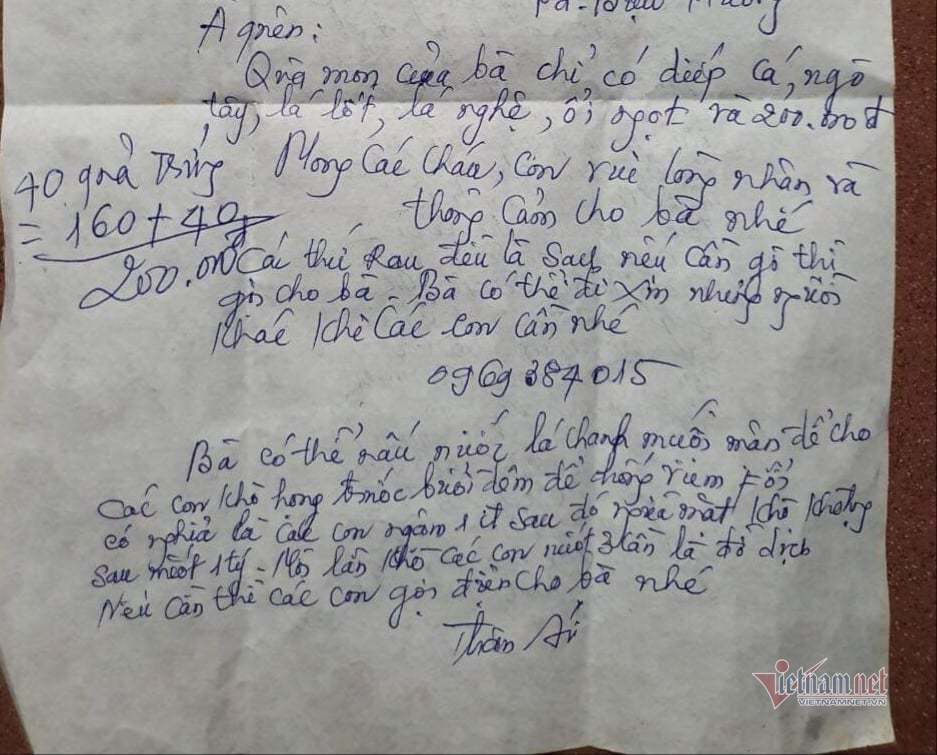 A quên:
Quà mọn của bà chỉ có diếp cá, ngò
tây, lá lốt, lá nghệ, ổi ngọt và 200.000đ
40 quả trứng
= 160 + 40
200.000
Mong các cháu, con vui lòng nhận và
thông cảm cho bà nhé
Các thứ rau đều là sạch nếu cần gì thì
gọi cho bà. Bà có thể đi xin những người
khác khi các con cần nhé
0969384015
Bà có thể nấu nước lá chanh muối mặn để cho
các con khò họng trước buổi đêm để chống viêm phổi
có nghĩa là các con ngậm 1 ít sau đó ngửa mặt khò khòng
sau nuốt 1 tý. Mỗi lần khò các con nuốt 3 lần là đỡ dịch
Nếu cần thì các con gọi điện cho bà nhé
Thân Ái
Vietnamnet
VIETNAMNET.VN